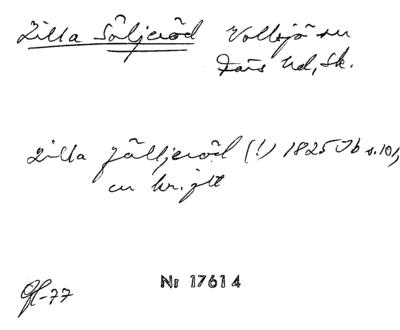 Lilla Söljeröd Vollsjö sn
Färs hd, Sk.
Lilla Jälljeröd (!) 1825 Jb s. 101,
en kr. jtt
GH-77
Nr 17614